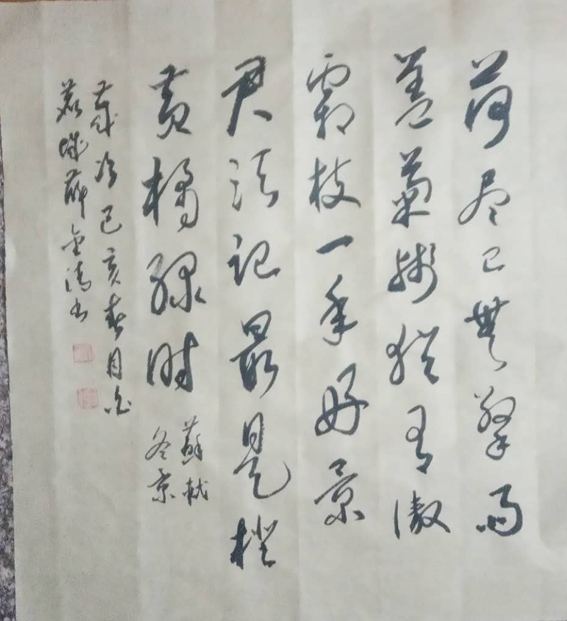 荷尽已無擎雨
盖菊残犹有傲
霜枝一年好景
君须记最是橙
黄橘绿时
蘇軾
冬景
歲次己亥春月
城薛金书